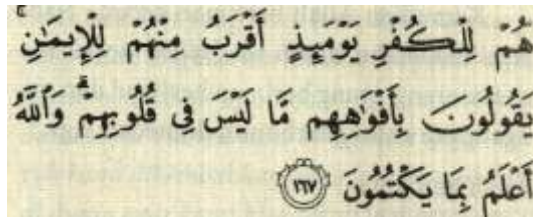 هُمْ لِلْكُفْرِ يَوْمَئِذٍ أَقْرَبُ مِنْهُمْ لِلْإِيمَٰنِ
يَقُولُونَ بِأَفْوَٰهِهِم مَّا لَيْسَ فِي قُلُوبِهِمْ ۗ وَٱللَّهُ
أَعْلَمُ بِمَا يَكْتُمُونَ ١٦٧